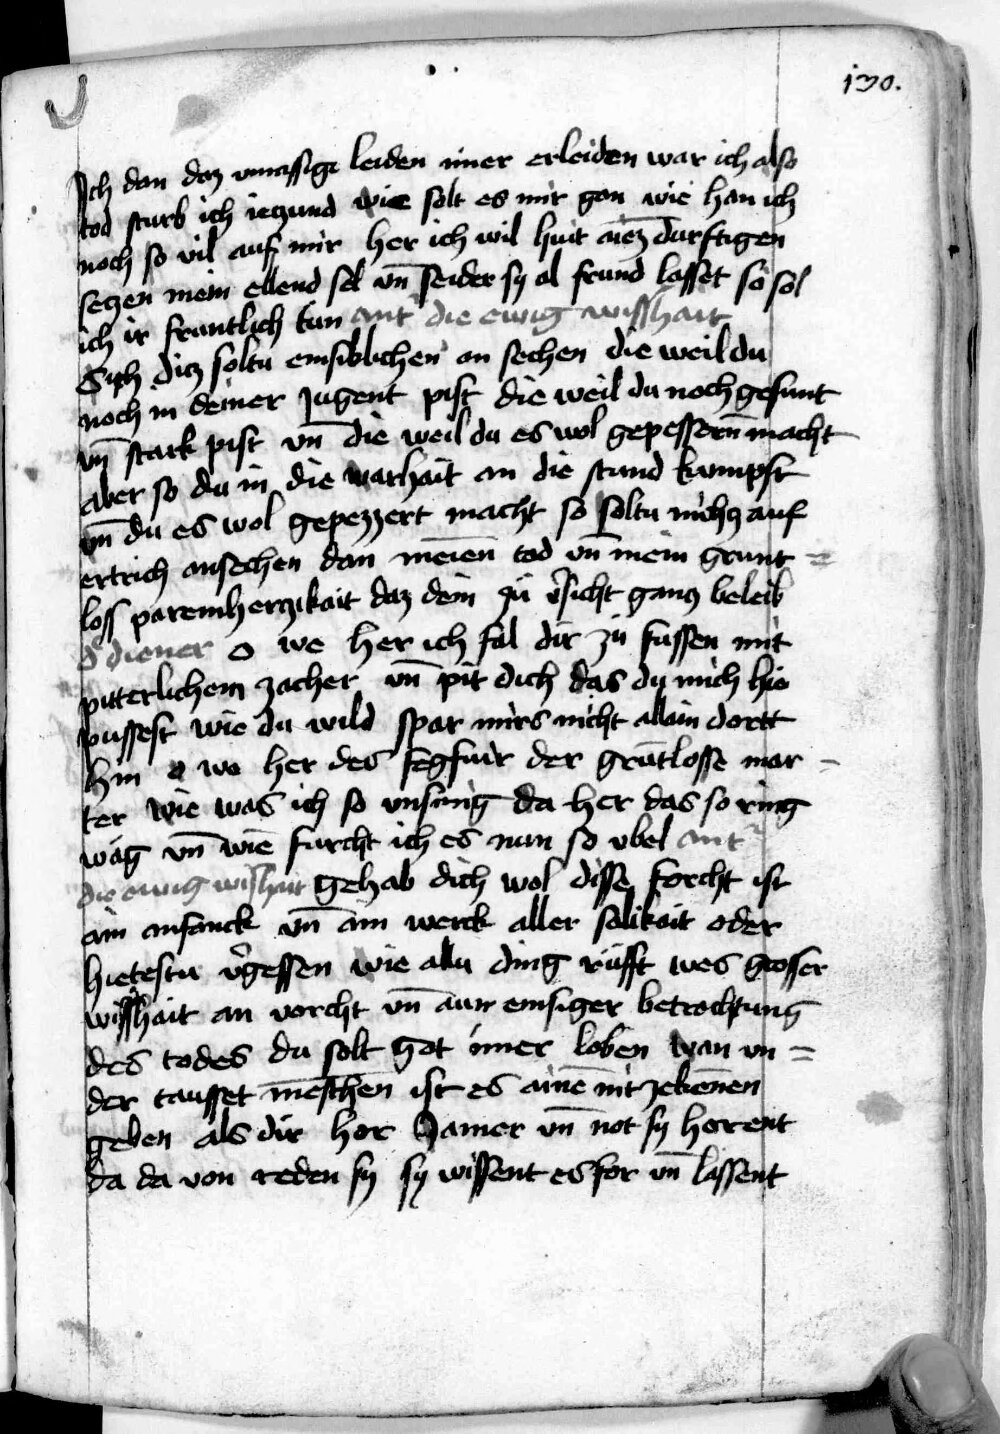 130.
Ich dan daz vnmassige leiden imer erleiden war ich also
tod sturb ich iezund wie solt es mir gan wie han ich
noch so vil auf mir her ich wil huit aiez durftigen
sezen mein ellend sel vn̄ seider sy al frund lasset so sol
ich ir fruntlich tun ant die ewig wisshait
Sich diz soltu emsiklichen an sechen die weil du
noch in deiner jugent pist die weil du noch gesunt
vn̄ stark pist vn̄ die weil du es wol gepessern̄ macht
aber so du in die warhait an die stund kumpst
vn̄ du es wol gepezzert macht so soltu nichz auf
ertrich ansechen dan meien̄ tod vn̄ mein grunt =
loss paremherzikait daz dein zu v̄sicht ganz beleib
d diener o we her ich fal dir zu fussen mit
pitterlichem zacher vn̄ pit dich das du mich hie
pussest wie du wild spar mirs nicht allain dortt
hin o we her des fegfuir der grūtlosse mar -
ter wie was ich so vnsinig da her das so ring
wag vn̄ wie furcht ich es nun so vbel ant
die ewig wishait gehab dich wol disse forcht ist
ain anfanck vn̄ ain werck aller salikait oder
hietestu v̄gessen wie allu ding rufft wes grosser
wisshait an vorcht vn̄ ainr emsiger betrachtung
des todes du solt got imer loben wan vn =
der tausset mēschen ist es ainē nit zekenen
geben als dir hor Jamer vn̄ not sy horent
da da von reden sy sy wissent es for vn̄ lassent